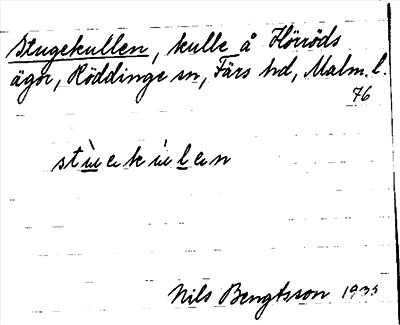 Stugekullen, kulle å Hörröds
ägor, Röddinge sn, Färs hd, Malm. l.
76
stùekùlen
Nils Bengtsson 1935